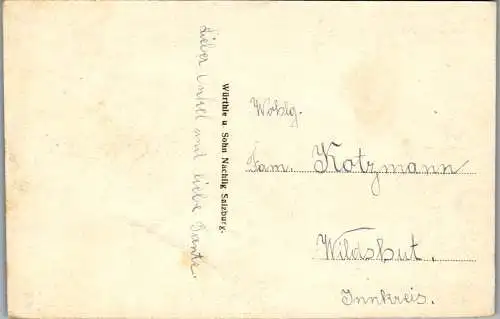 Lieber Onkel und liebe Tante.
Würthle u. Sohn Nachflg Salzburg.
Wohlg.
Fam. Kotzmann
Wildshut.
Innkreis.